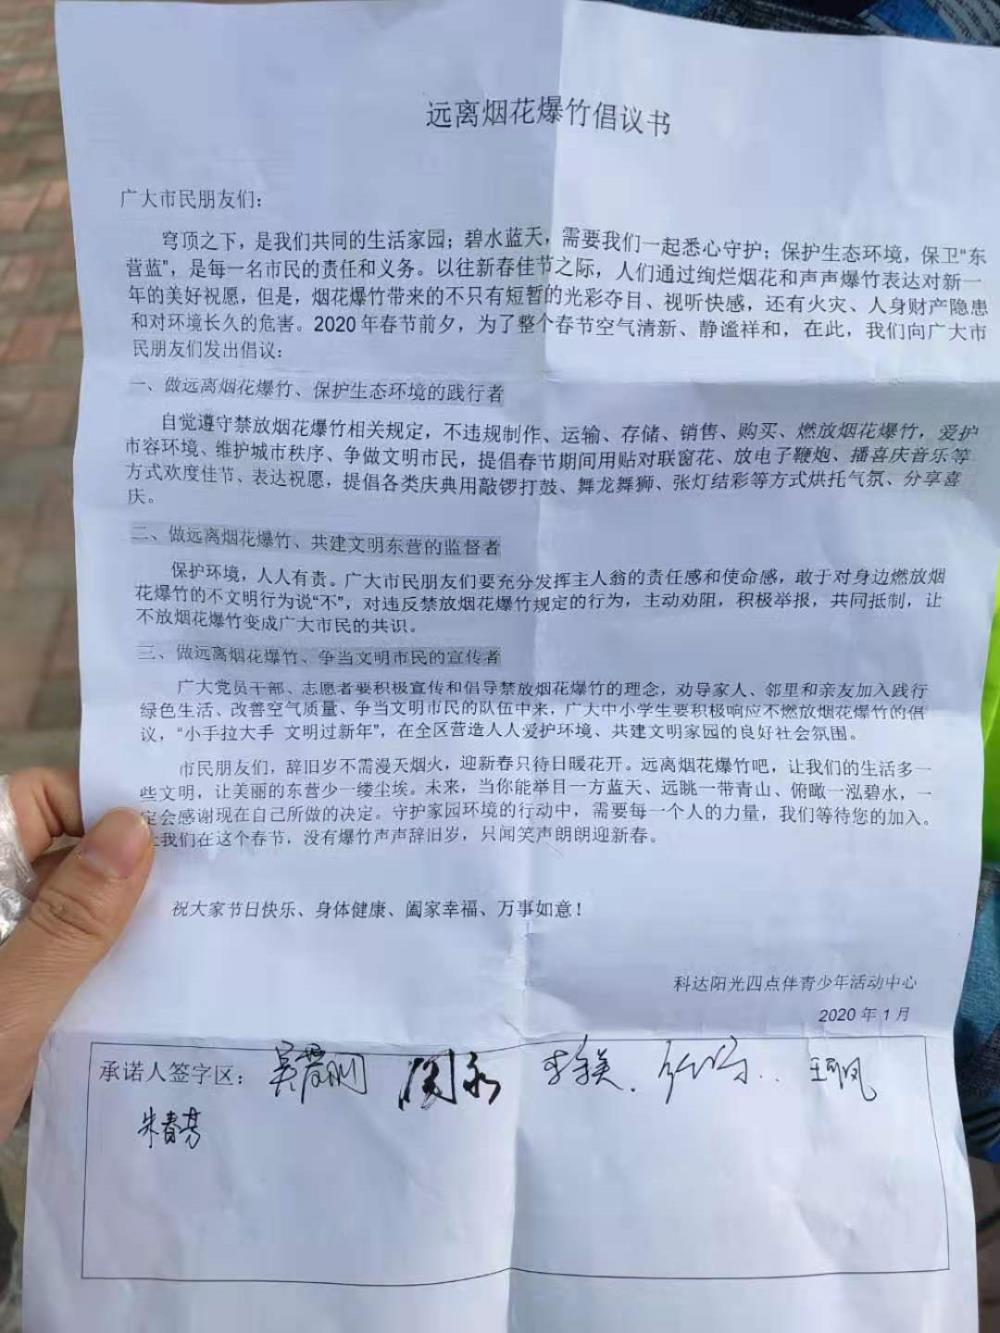 远离烟花爆竹倡议书
广大市民朋友们：
穹顶之下，是我们共同的生活家园；碧水蓝天，需要我们一起悉心守护；保护生态环境，保卫“东
营蓝”，是每一名市民的责任和义务。以往新春佳节之际，人们通过绚烂烟花和声声爆竹表达对新一
年的美好祝愿，但是，烟花爆竹带来的不只有短暂的光彩夺目、视听快感，还有火灾、人身财产隐患
和对环境长久的危害。2020年春节前夕，为了整个春节空气清新、静谧祥和，在此，我们向广大市
民朋友们发出倡议：
一、做远离烟花爆竹、保护生态环境的践行者
自觉遵守禁放烟花爆竹相关规定，不违规制作、运输、存储、销售、购买、燃放烟花爆竹，爱护
市容环境、维护城市秩序、争做文明市民，提倡春节期间用贴对联窗花、放电子鞭炮、播喜庆音乐等
方式欢度佳节、表达祝愿，提倡各类庆典用敲锣打鼓、舞龙舞狮、张灯结彩等方式烘托气氛、分享喜
庆。
二、做远离烟花爆竹、共建文明东营的监督者
保护环境，人人有责。广大市民朋友们要充分发挥主人翁的责任感和使命感，敢于对身边燃放烟
花爆竹的不文明行为说“不”，对违反禁放烟花爆竹规定的行为，主动劝阻，积极举报，共同抵制，让
不放烟花爆竹变成广大市民的共识。
三、做远离烟花爆竹、争当文明市民的宣传者
广大党员干部、志愿者要积极宣传和倡导禁放烟花爆竹的理念，劝导家人、邻里和亲友加入践行
绿色生活、改善空气质量、争当文明市民的队伍中来，广大中小学生要积极响应不燃放烟花爆竹的倡
议，“小手拉大手 文明过新年”，在全区营造人人爱护环境、共建文明家园的良好社会氛围。
市民朋友们，辞旧岁不需漫天烟火，迎新春只待日暖花开。远离烟花爆竹吧，让我们的生活多一
些文明，让美丽的东营少一缕尘埃。未来，当你能举目一方蓝天、远眺一带青山、俯瞰一泓碧水，一
定会感谢现在自己所做的决定。守护家园环境的行动中，需要每一个人的力量，我们等待您的加入。
让我们在这个春节，没有爆竹声声辞旧岁，只闻笑声朗朗迎新春。
祝大家节日快乐、身体健康、阖家幸福、万事如意！
科达阳光四点伴青少年活动中心
2020年1月
承诺人签字区：
朱春芬